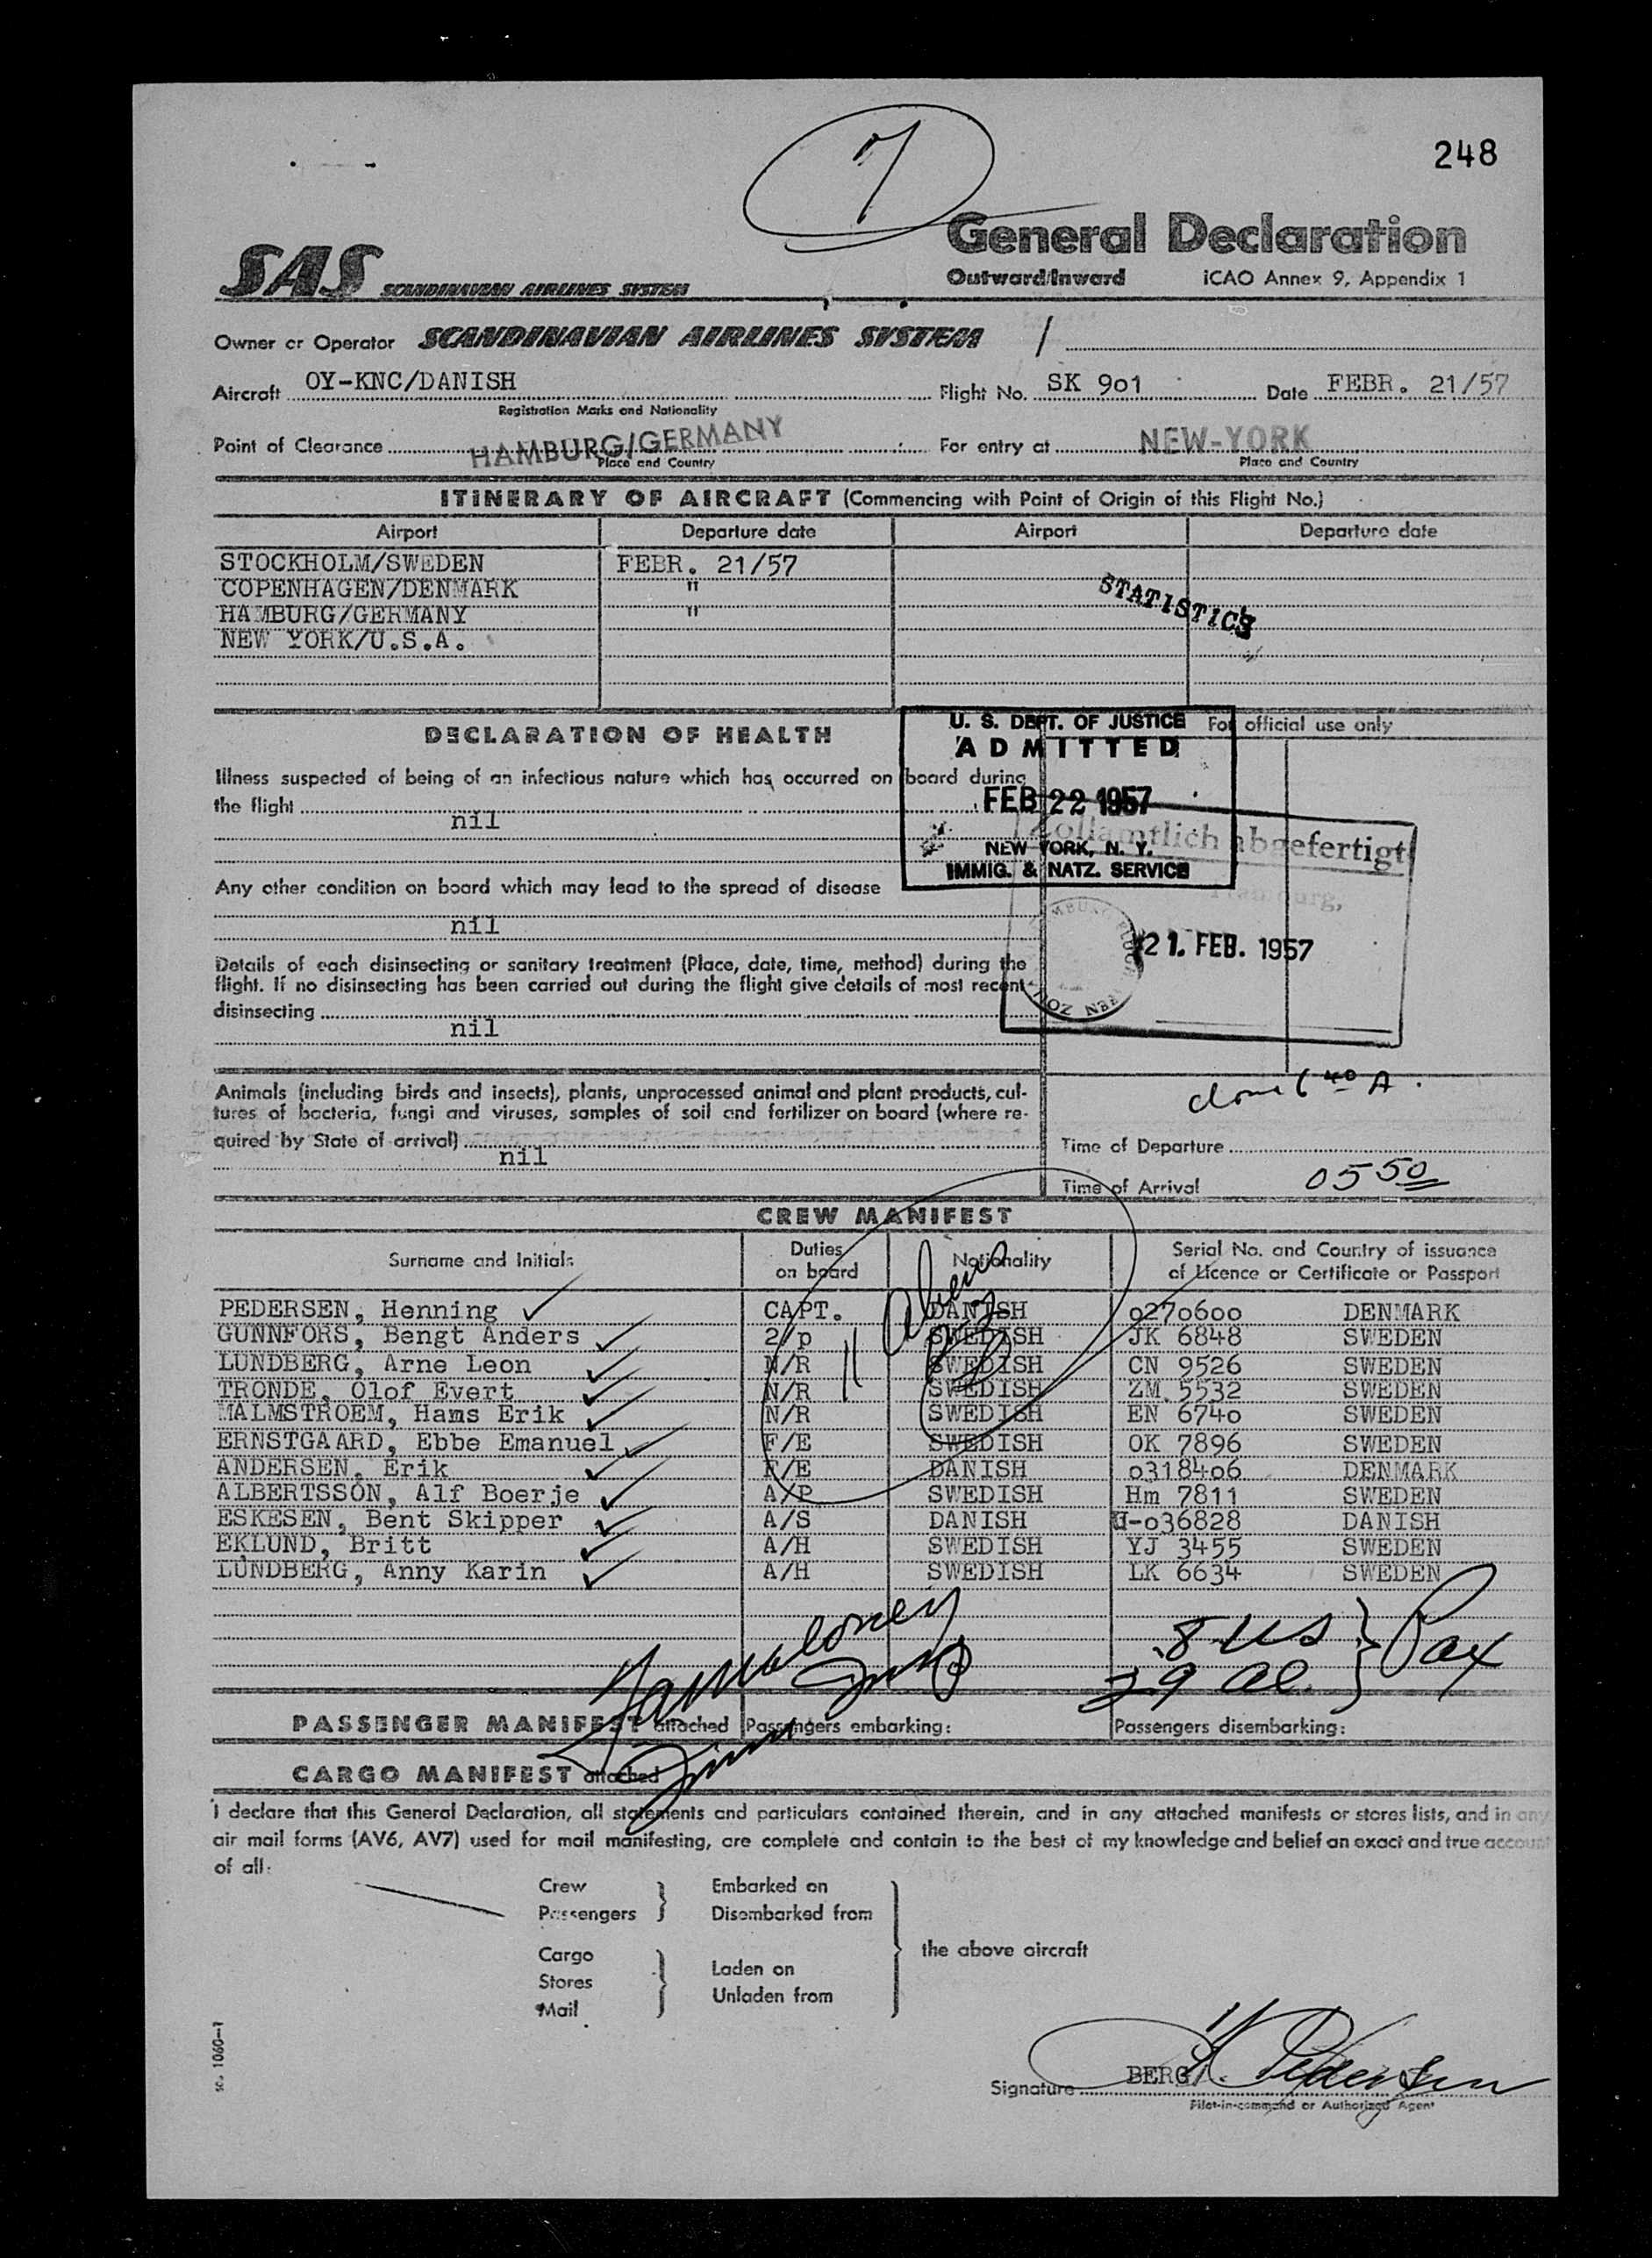 7
248
General Declaration
SAS SCANDINAVIAN AIRLINES SYSTEM
Outward/Inward ICAO Annex 9, Appendix 1
Owner or Operator SCANDINAVIAN AIRLINES SYSTEM /
Aircraft OY-KNC/DANISH Flight No. SK 9o1 Date FEBR. 21/57
Registration Marks and Nationality
Point of Clearance HAMBURG/GERMANY For entry at NEW-YORK
Place and Country Place and Country
ITINERARY OF AIRCRAFT (Commencing with Point of Origin of this Flight No.)
Airport Departure date Airport Departure date
STOCKHOLM/SWEDEN FEBR. 21/57
COPENHAGEN/DENMARK "
HAMBURG/GERMANY "
NEW YORK/U.S.A.
STATISTICS
DECLARATION OF HEALTH
For official use only
U. S. DEPT. OF JUSTICE
ADMITTED
FEB 22 1957
NEW YORK, N. Y.
IMMIG. & NATZ. SERVICE
Illness suspected of being of an infectious nature which has occurred on board during
the flight
nil
Zollamtlich abgefertigt
Hamburg,
21. FEB. 1957
Any other condition on board which may lead to the spread of disease
nil
Details of each disinsecting or sanitary treatment (Place, date, time, method) during the
flight. If no disinsecting has been carried out during the flight give details of most recent
disinsecting
nil
Animals (including birds and insects), plants, unprocessed animal and plant products, cul-
tures of bacteria, fungi and viruses, samples of soil and fertilizer on board (where re-
quired by State of arrival)
nil
6 40 A.
Time of Departure
Time of Arrival 05 50
CREW MANIFEST
Surname and Initials Duties on board Nationality Serial No. and Country of issuance of Licence or Certificate or Passport
11 Aliens
PEDERSEN, Henning CAPT. DANISH o27o6oo DENMARK
GUNNFORS, Bengt Anders 2/p SWEDISH JK 6848 SWEDEN
LUNDBERG, Arne Leon N/R SWEDISH CN 9526 SWEDEN
TRONDE, Olof Evert N/R SWEDISH ZM 5532 SWEDEN
MALMSTROEM, Hams Erik N/R SWEDISH EN 674o SWEDEN
ERNSTGAARD, Ebbe Emanuel F/E SWEDISH OK 7896 SWEDEN
ANDERSEN, Erik F/E DANISH o3184o6 DENMARK
ALBERTSSON, Alf Boerje A/P SWEDISH Hm 7811 SWEDEN
ESKESEN, Bent Skipper A/S DANISH -o36828 DANISH
EKLUND, Britt A/H SWEDISH YJ 3455 SWEDEN
LUNDBERG, Anny Karin A/H SWEDISH LK 6634 SWEDEN
8 US
29 al. } Pax
PASSENGER MANIFEST attached Passengers embarking: Passengers disembarking:
CARGO MANIFEST attached
I declare that this General Declaration, all statements and particulars contained therein, and in any attached manifests or stores lists, and in any
air mail forms (AV6, AV7) used for mail manifesting, are complete and contain to the best of my knowledge and belief an exact and true account
of all:
Crew Embarked on
Passengers Disembarked from
the above aircraft
Cargo
Stores Laden on
Mail Unladen from
sc. 1060-1
Signature BERG/. H Pedersen
Pilot-in-command or Authorized Agent